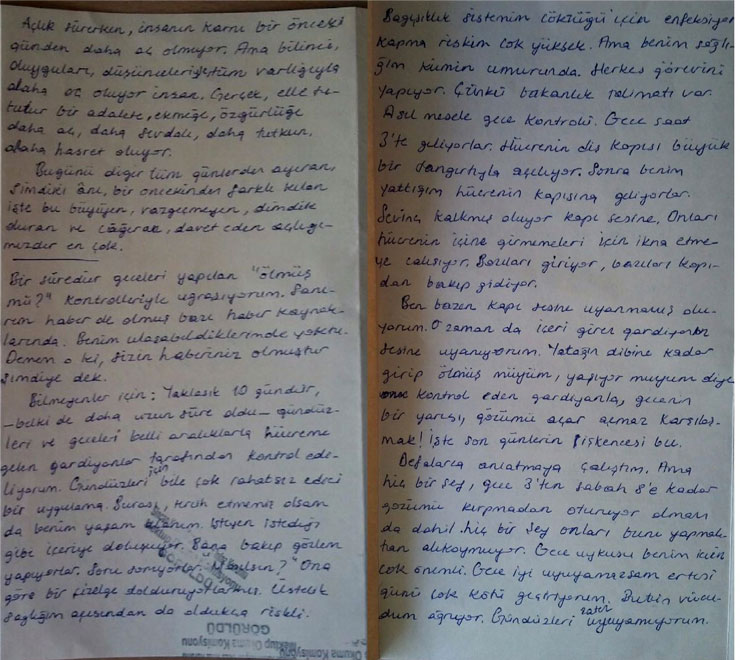 Açlık sürerken, insanın karnı bir önceki
günden daha aç olmuyor. Ama bilinci,
duyguları, düşünceleriyle tüm varlığıyla
daha aç oluyor insan. Gerçek, elle tu-
tulur bir adalete, ekmeğe, özgürlüğe
daha aç, daha sevdalı, daha tutkun,
daha hasret oluyor.
Bugünü diğer tüm günlerden ayıran,
şimdiki anı, bir öncekinden farklı kılan
işte bu büyüyen, vazgeçmeyen, dimdik
duran ve çağıran, davet eden açlığı-
mızdır en çok.
Bir süredir geceleri yapılan "ölmüş
mü?" kontrolleriyle uğraşıyorum. Sanı-
rım haber de olmuş bazı haber kaynak-
larında. Benim ulaşabildiklerimde yoktu.
Demem o ki, sizin haberiniz olmuştur
şimdiye dek.
Bilmeyenler için: Yaklaşık 10 gündür,
-belki de daha uzun süre oldu- gündüz-
leri ve geceleri belli aralıklarla hücreme
gelen gardiyanlar tarafından kontrol edi-
liyorum. Gündüzleri için bile çok rahatsız edici
bir uygulama. Burası, tercih etmemiş olsam
da benim yaşam alanım. İsteyen istediği
gibi içeriye doluşuyor. Bana bakıp gözlem
yapıyorlar. Soru soruyorlar. "Nasılsın?" Ona
göre bir çizelge dolduruyorlarmış. Üstelik
sağlığım açısından da oldukça riskli.
Mektup Okuma Komisyonu
GÖRÜLDÜ
Bağışıklık sistemim çöktüğü için enfeksiyon
kapma riskim çok yüksek. Ama benim sağlı-
ğım kimin umurunda. Herkes görevini
yapıyor. Çünkü bakanlık talimatı var.
Asıl mesele gece kontrolü. Gece saat
3'te geliyorlar. Hücrenin dış kapısı büyük
bir tangırtıyla açılıyor. Sonra benim
yattığım hücrenin kapısına geliyorlar.
Sevinç kalkmış oluyor kapı sesine. Onları
hücrenin içine girmemeleri için ikna etme-
ye çalışıyor. Bazıları giriyor, bazıları kapı-
dan bakıp gidiyor.
Ben bazen kapı sesine uyanmamış olu-
yorum. O zaman da içeri giren gardiyanın
sesine uyanıyorum. Yatağın dibine kadar
girip ölmüş müyüm, yaşıyor muyum diye
kontrol eden gardiyanla, gecenin
bir yarısı, gözümü açar açmaz karşılaş-
mak! İşte son günlerin işkencesi bu.
Defalarca anlatmaya çalıştım. Ama
hiç bir şey, gece 3'ten sabah 8'e kadar
gözümü kırpmadan oturuyor olmam
da dahil hiç bir şey onları bunu yapmak-
tan alıkoymuyor. Gece uykusu benim için
çok önemli. Gece iyi uyuyamazsam ertesi
günü çok kötü geçiriyorum. Bütün vücu-
dum ağrıyor. Gündüzleri zaten uyuyamıyorum.